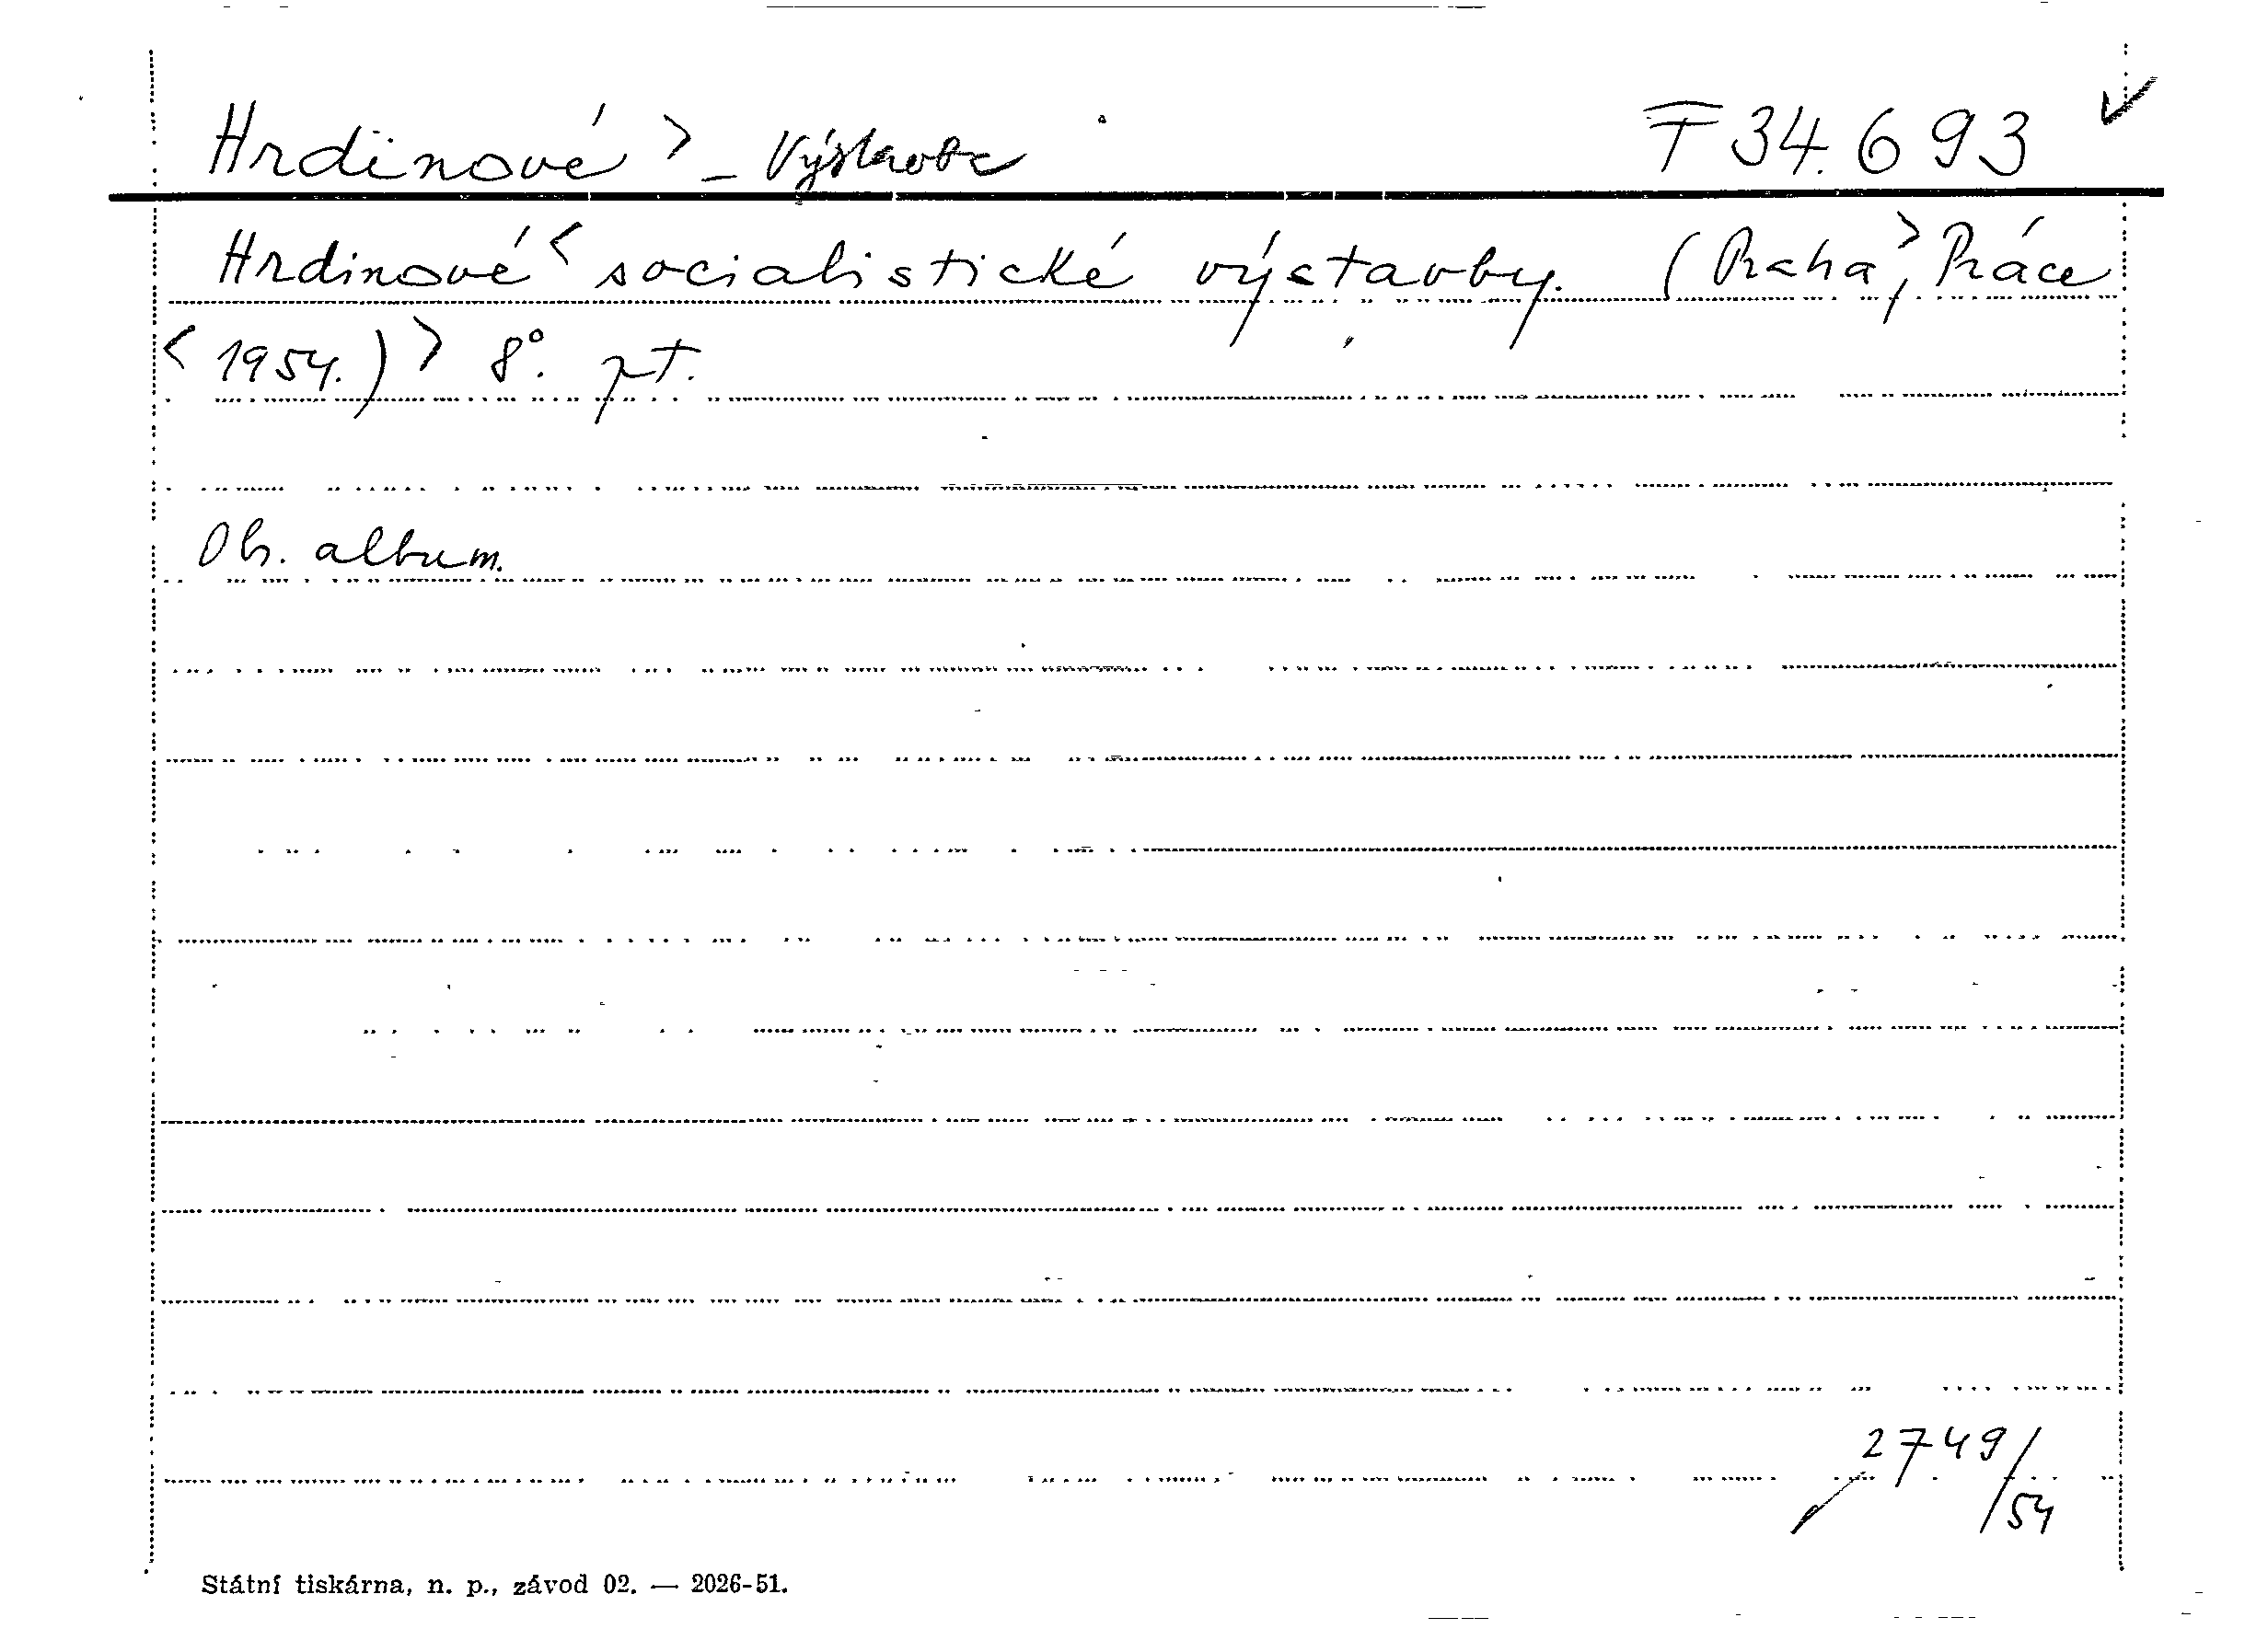 Hrdinové > - Výstavba F 34.693 ✓
Hrdinové < socialistické výstavby. (Praha >, Práce
< 1954.) > 8°. pt.
Ob. album.
2749/54
Státní tiskárna, n. p., závod 02. — 2026-51.